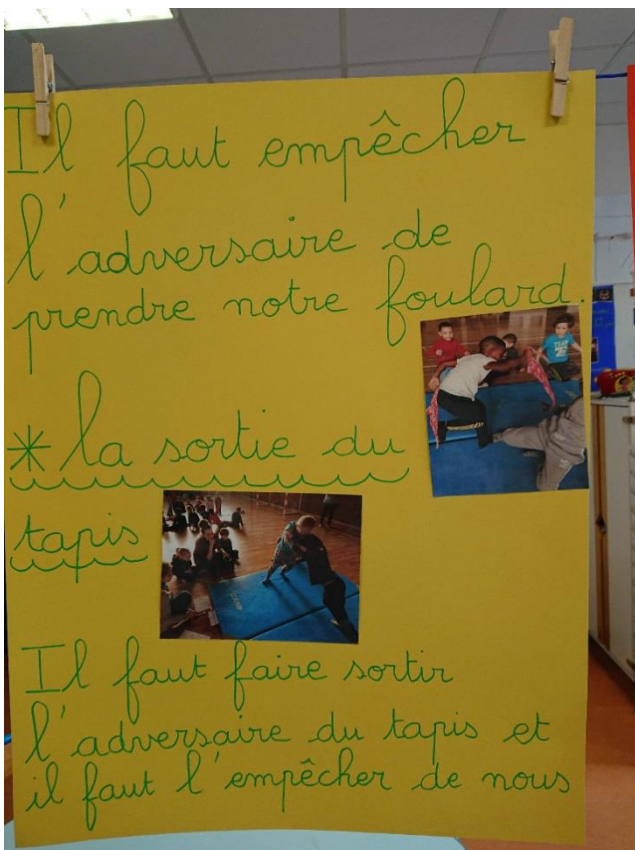 Il faut empêcher
l'adversaire de
prendre notre foulard.
* la sortie du
tapis
Il faut faire sortir
l'adversaire du tapis et
il faut l'empêcher de nous